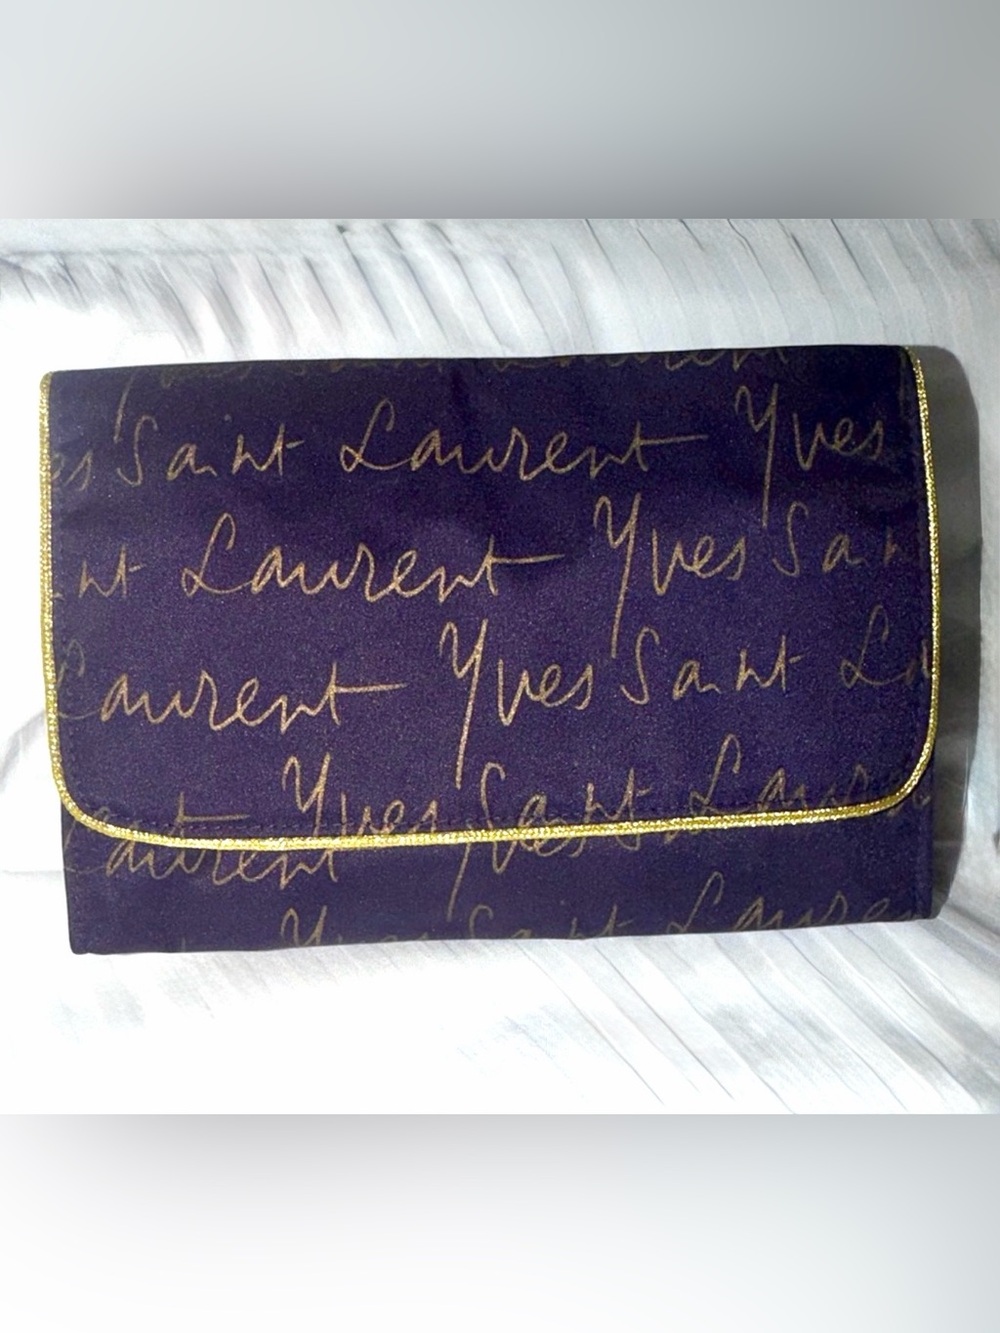 Saint Laurent Yves
nt Laurent Yves Sain
Laurent Yves Saint La
Yves Saint Laure
Laurent Yves
Yves Saint Lauren